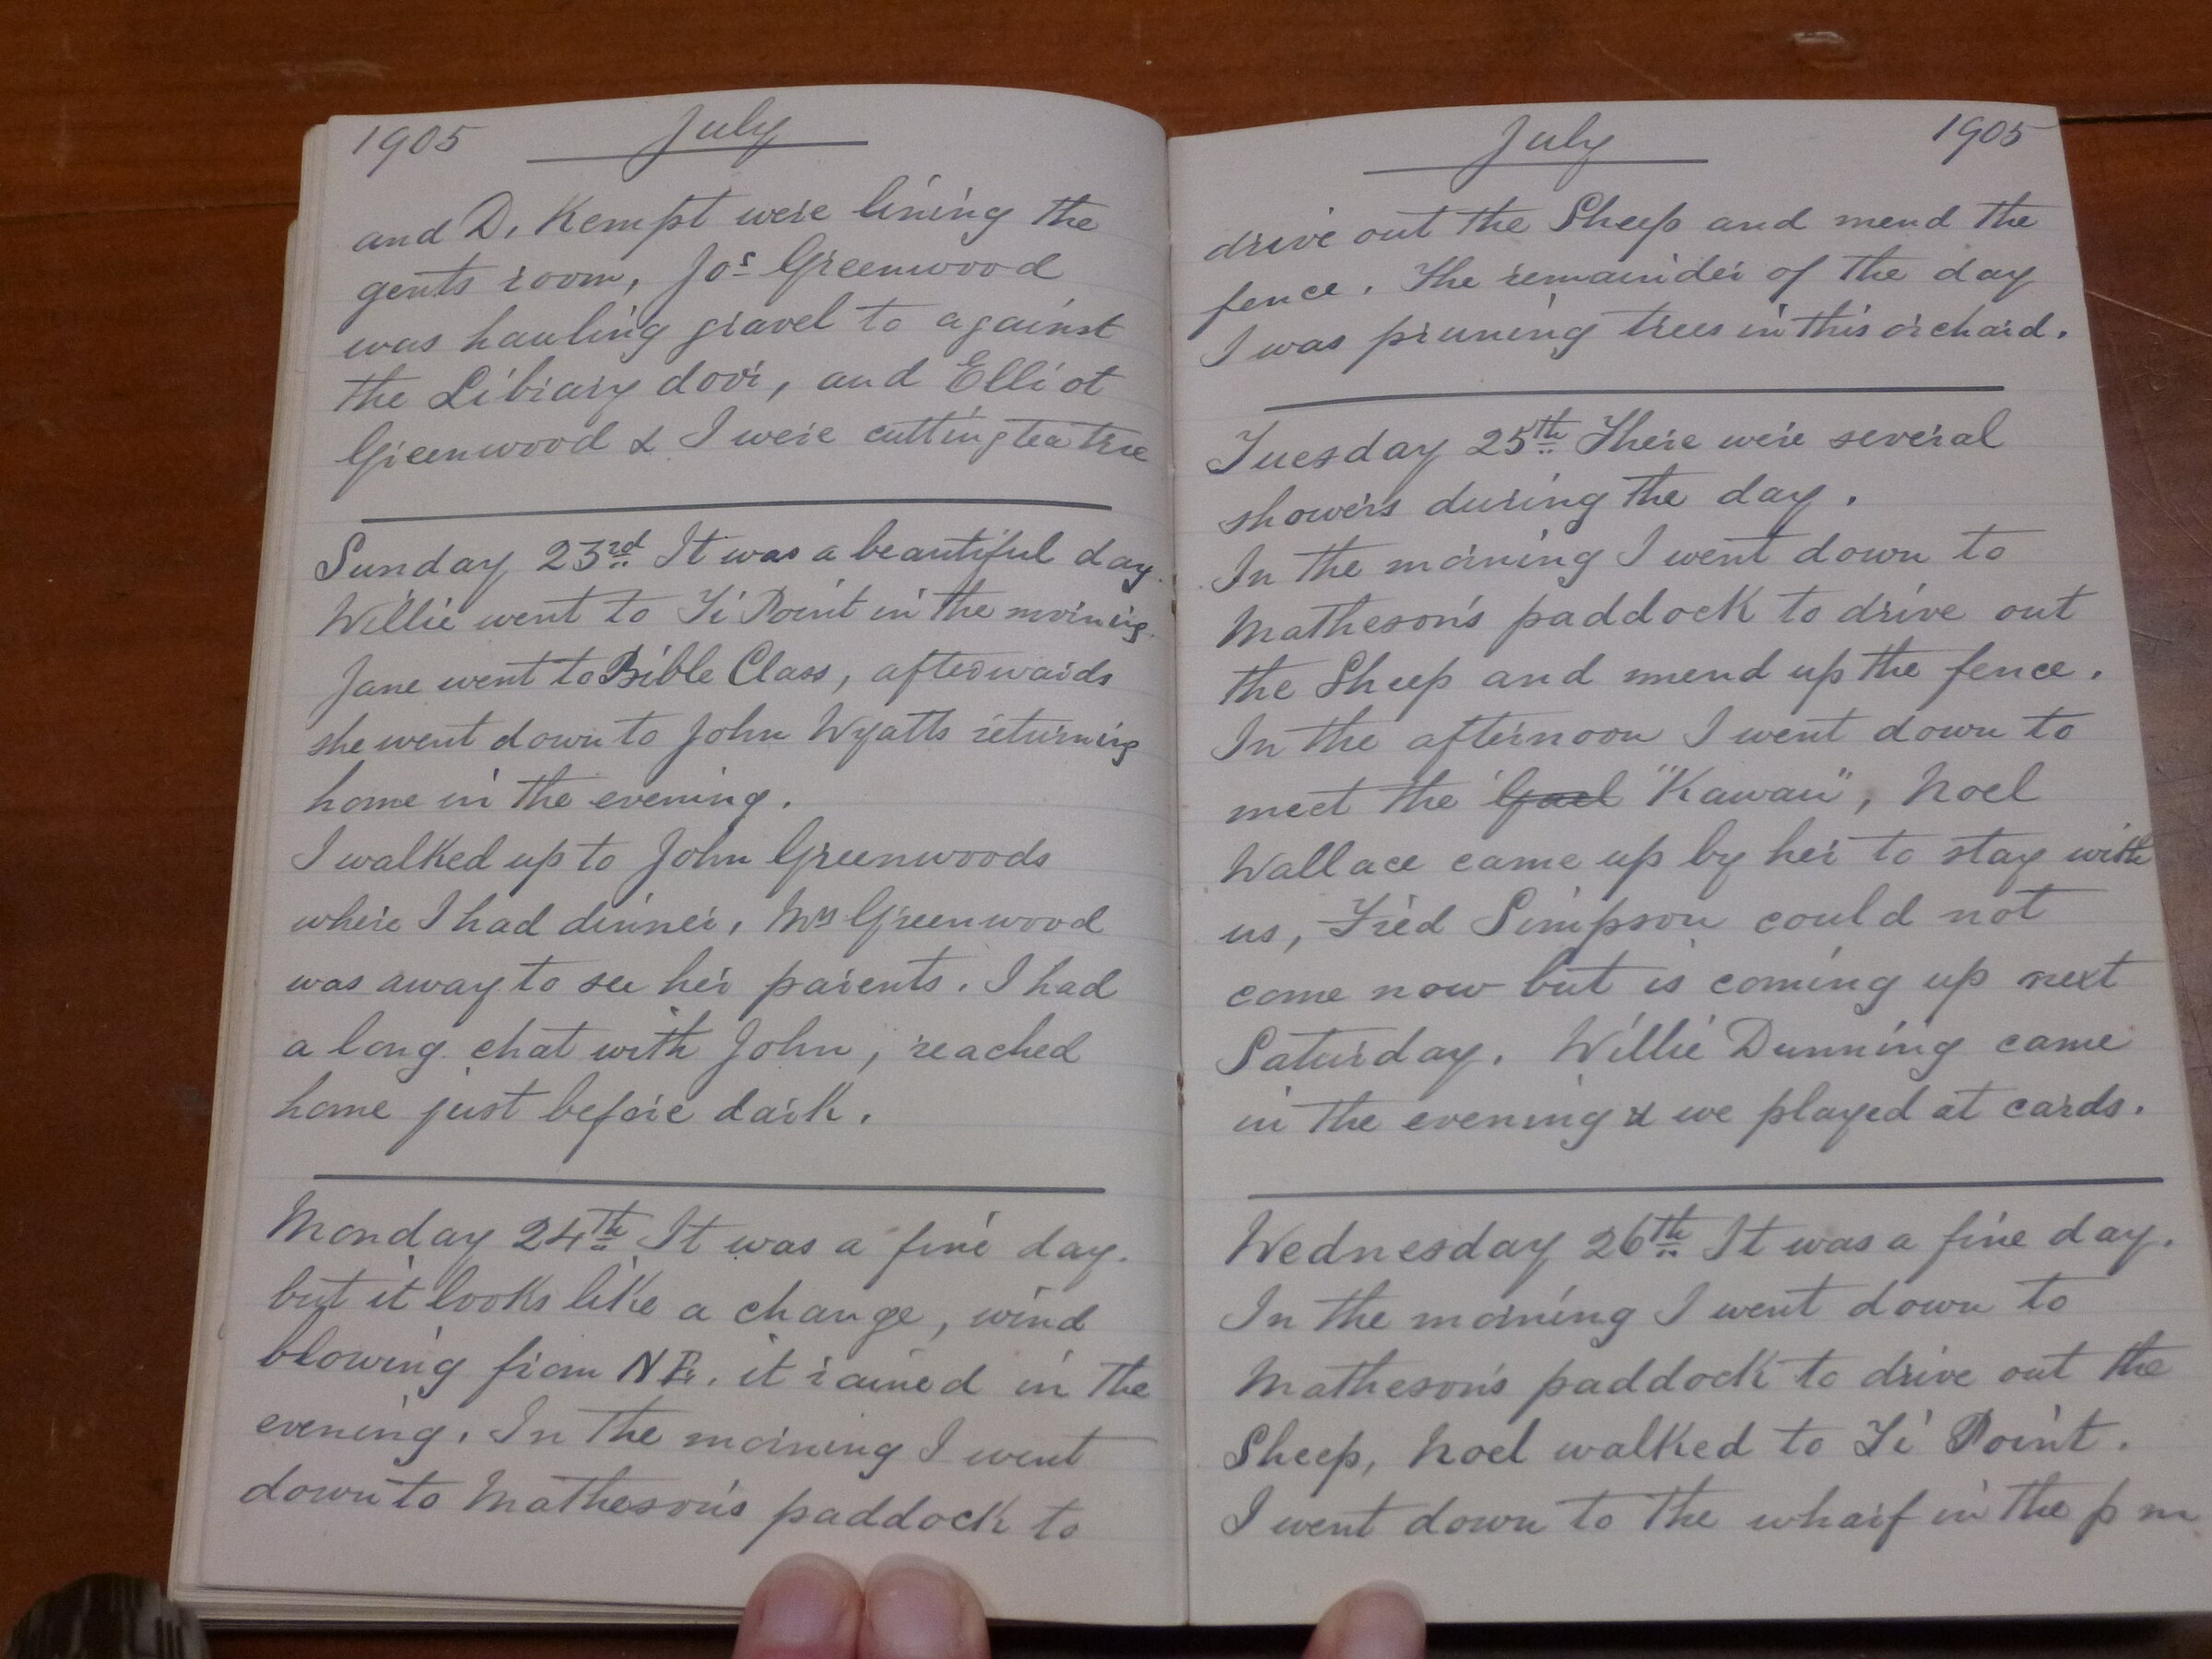 1905 July
and D. Kempt were lining the
gents room, Jos Greenwood
was hauling gravel to against
the Library door, and Elliot
Greenwood & I were cutting tea tree
Sunday 23rd It was a beautiful day.
Willie went to Ti Point in the morning.
Jane went to Bible Class, afterwards
she went down to John Wyatts returning
home in the evening.
I walked up to John Greenwoods
where I had dinner, Mrs Greenwood
was away to see her parents. I had
a long chat with John, reached
home just before dark.
Monday 24th It was a fine day.
but it looks like a change, wind
blowing from NE. it rained in the
evening. In the morning I went
down to Matheson's paddock to
July 1905
drive out the Sheep and mend the
fence. The remainder of the day
I was pruning trees in this orchard.
Tuesday 25th There were several
showers during the day.
In the morning I went down to
Matheson's paddock to drive out
the Sheep and mend up the fence.
In the afternoon I went down to
meet the Gael "Kawau", Noel
Wallace came up by her to stay with
us, Fred Simpson could not
come now but is coming up next
Saturday. Willie Dunning came
in the evening & we played at cards.
Wednesday 26th It was a fine day.
In the morning I went down to
Matheson's paddock to drive out the
Sheep, Noel walked to Ti Point.
I went down to the wharf in the p m